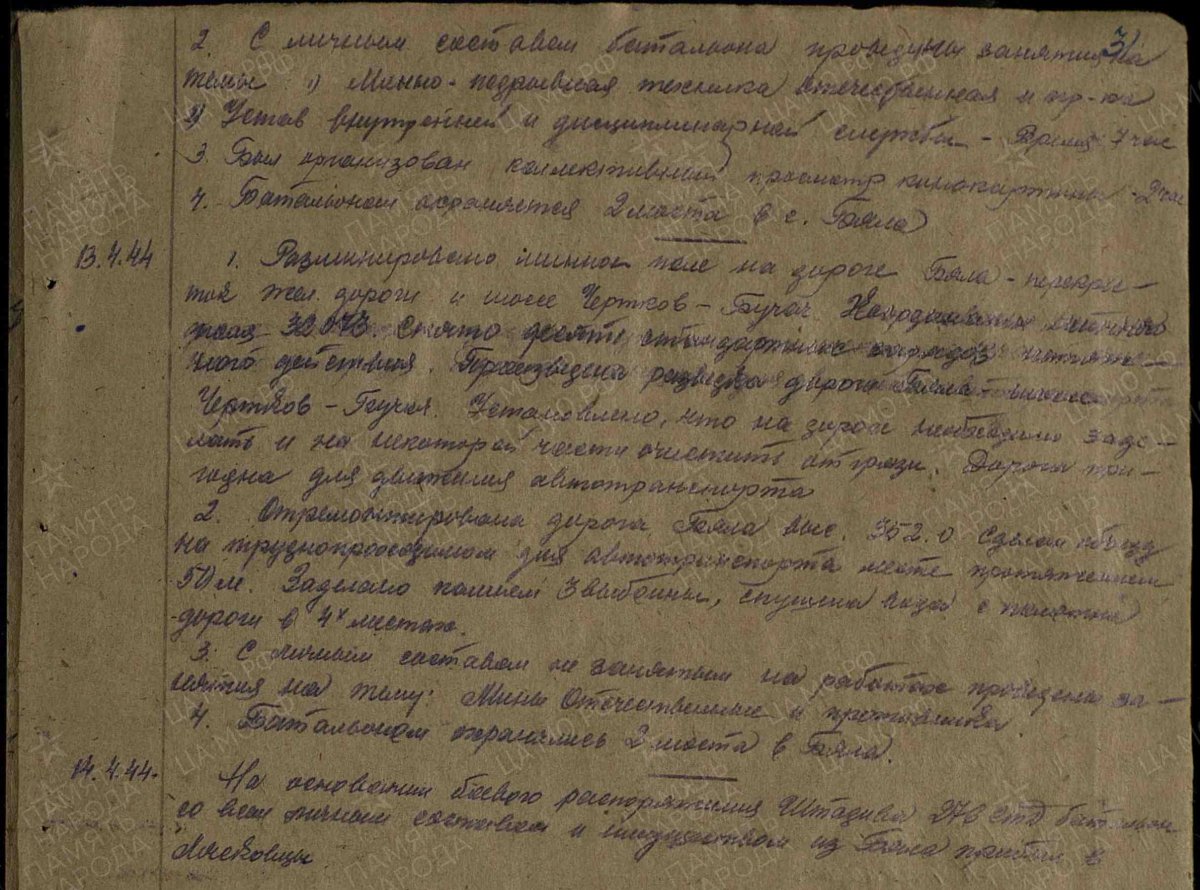 31
2. С личным составом батальона проведены занятия на
темы 1) Минно-подрывная техника отечественная и пр-ка
2) Устав внутренней и дисциплинарной службы - Время 7 час
3. Был организован коллективный просмотр кинокартины - 2 час
4. Батальоном охраняется 2 моста в с. Бяла
13.4.44
1. Разминировано минное поле на дороге Бяла - перекрес-
ток жел. дороги и шоссе Чертков - Бучач.
Снято десять стандартных зарядов
ного действия. Произведена разведка дороги Бяла - шоссе
Чертков - Бучач. Установлено, что на дороге необходимо заде-
лать и на некоторой части очистить от грязи. Дорога при-
годна для движения автотранспорта
2. Отремонтирована дорога Бяла выс. 352.0 Сделан объезд
на труднопроходимом для автотранспорта месте протяжением
50 м. Заделано камнем 3 выбоины, спущена вода с полотна
дороги в 4х местах.
3. С личным составом не занятым на работах проведены за-
нятия на тему: Мины Отечественные и противника
4. Батальоном охранялись 2 моста в Бяла.
14.4.44.
На основании боевого распоряжения Штадива 276 СТД батальон
со всем личным составом и имуществом из Бяла прибыл в